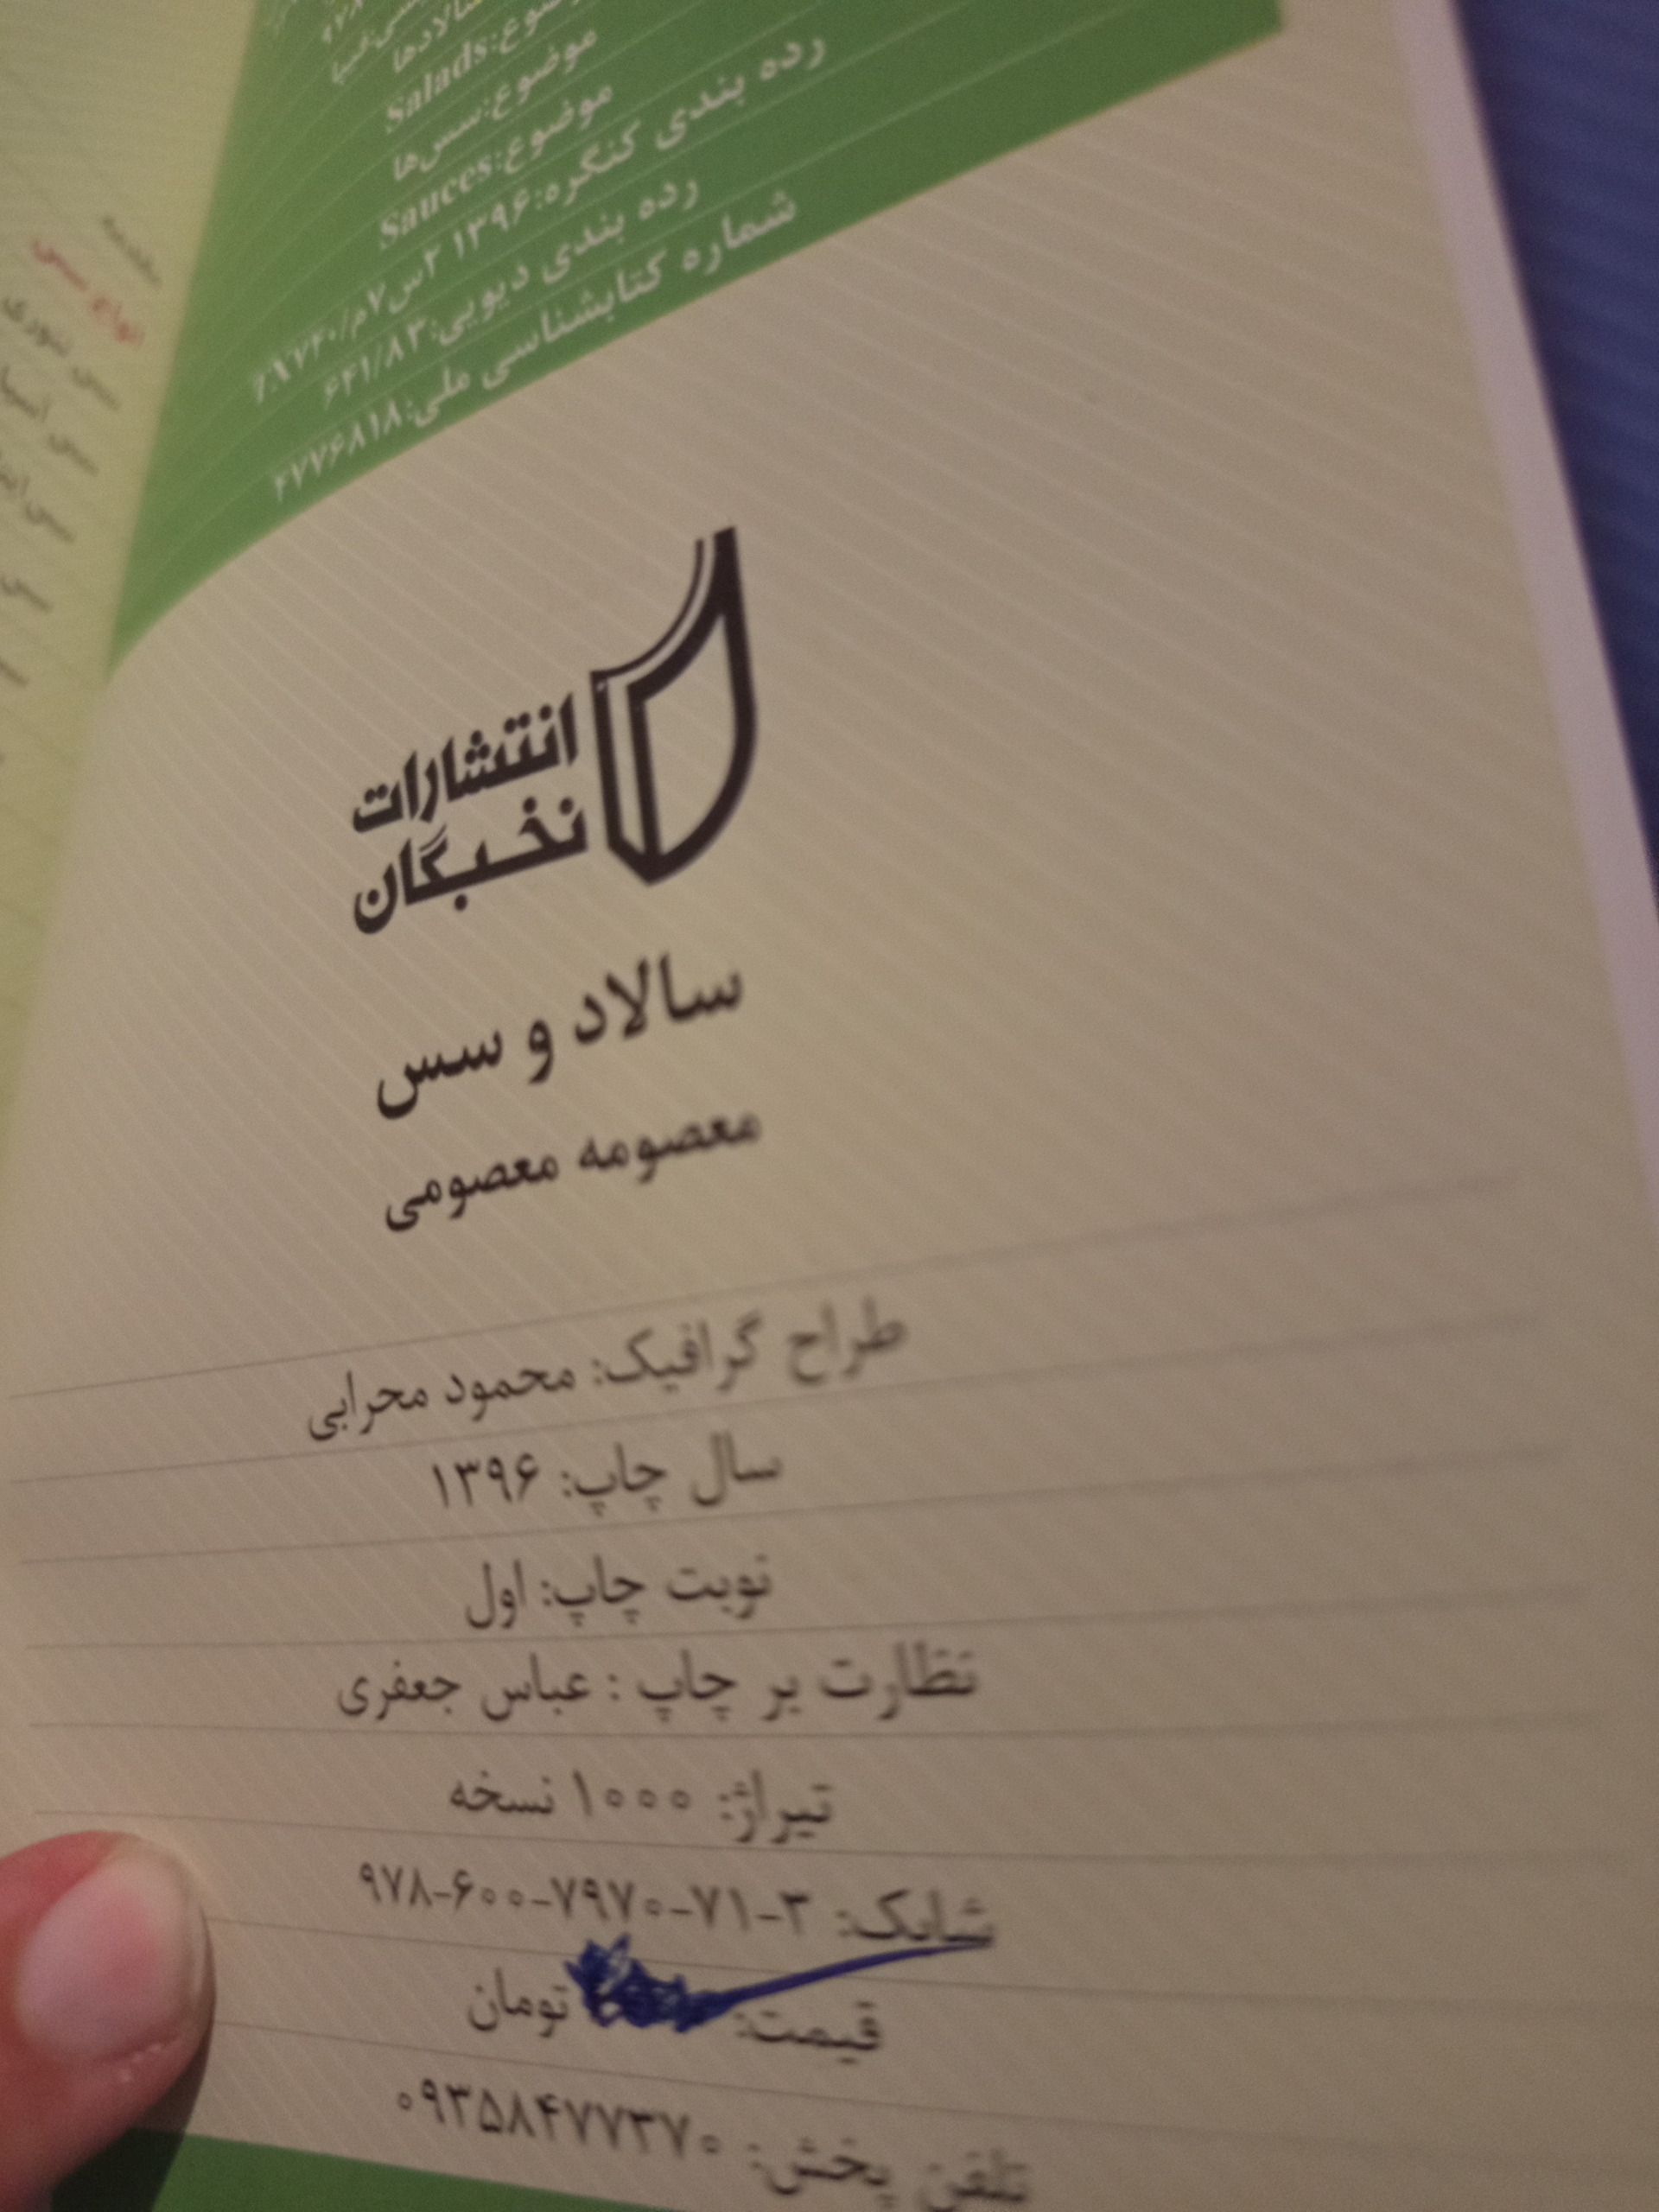 موضوع:Salads
موضوع:سس‌ها
موضوع:Sauces
رده بندی کنگره:۱۳۹۶ ۲س۷م/
رده بندی دیویی:۶۴۱/۸۳
شماره کتابشناسی ملی:۴۷۷۶۸۱۸
انتشارات
نخبگان
سالاد و سس
معصومه معصومی
طراح گرافیک: محمود محرابی
سال چاپ: ۱۳۹۶
نوبت چاپ: اول
نظارت بر چاپ : عباس جعفری
تیراژ: ۱۰۰۰ نسخه
شابک: ۹۷۸-۶۰۰-۷۹۷۰-۷۱-۳
قیمت: تومان
تلفن پخش: ۰۹۳۵۸۴۷۷۳۷۰
مقدمه
انواع سس
سس تنوری
سس
سس
سس